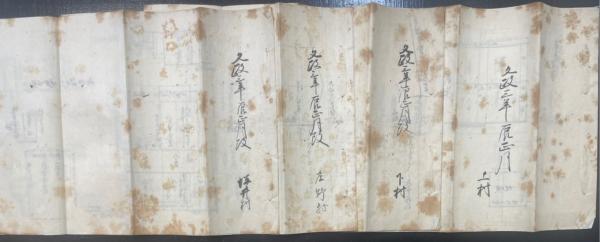 文政三年辰正月
上村
文政三年辰正月改
下村
文政三年辰正月改
庄野村
文政三年辰正月改
井村